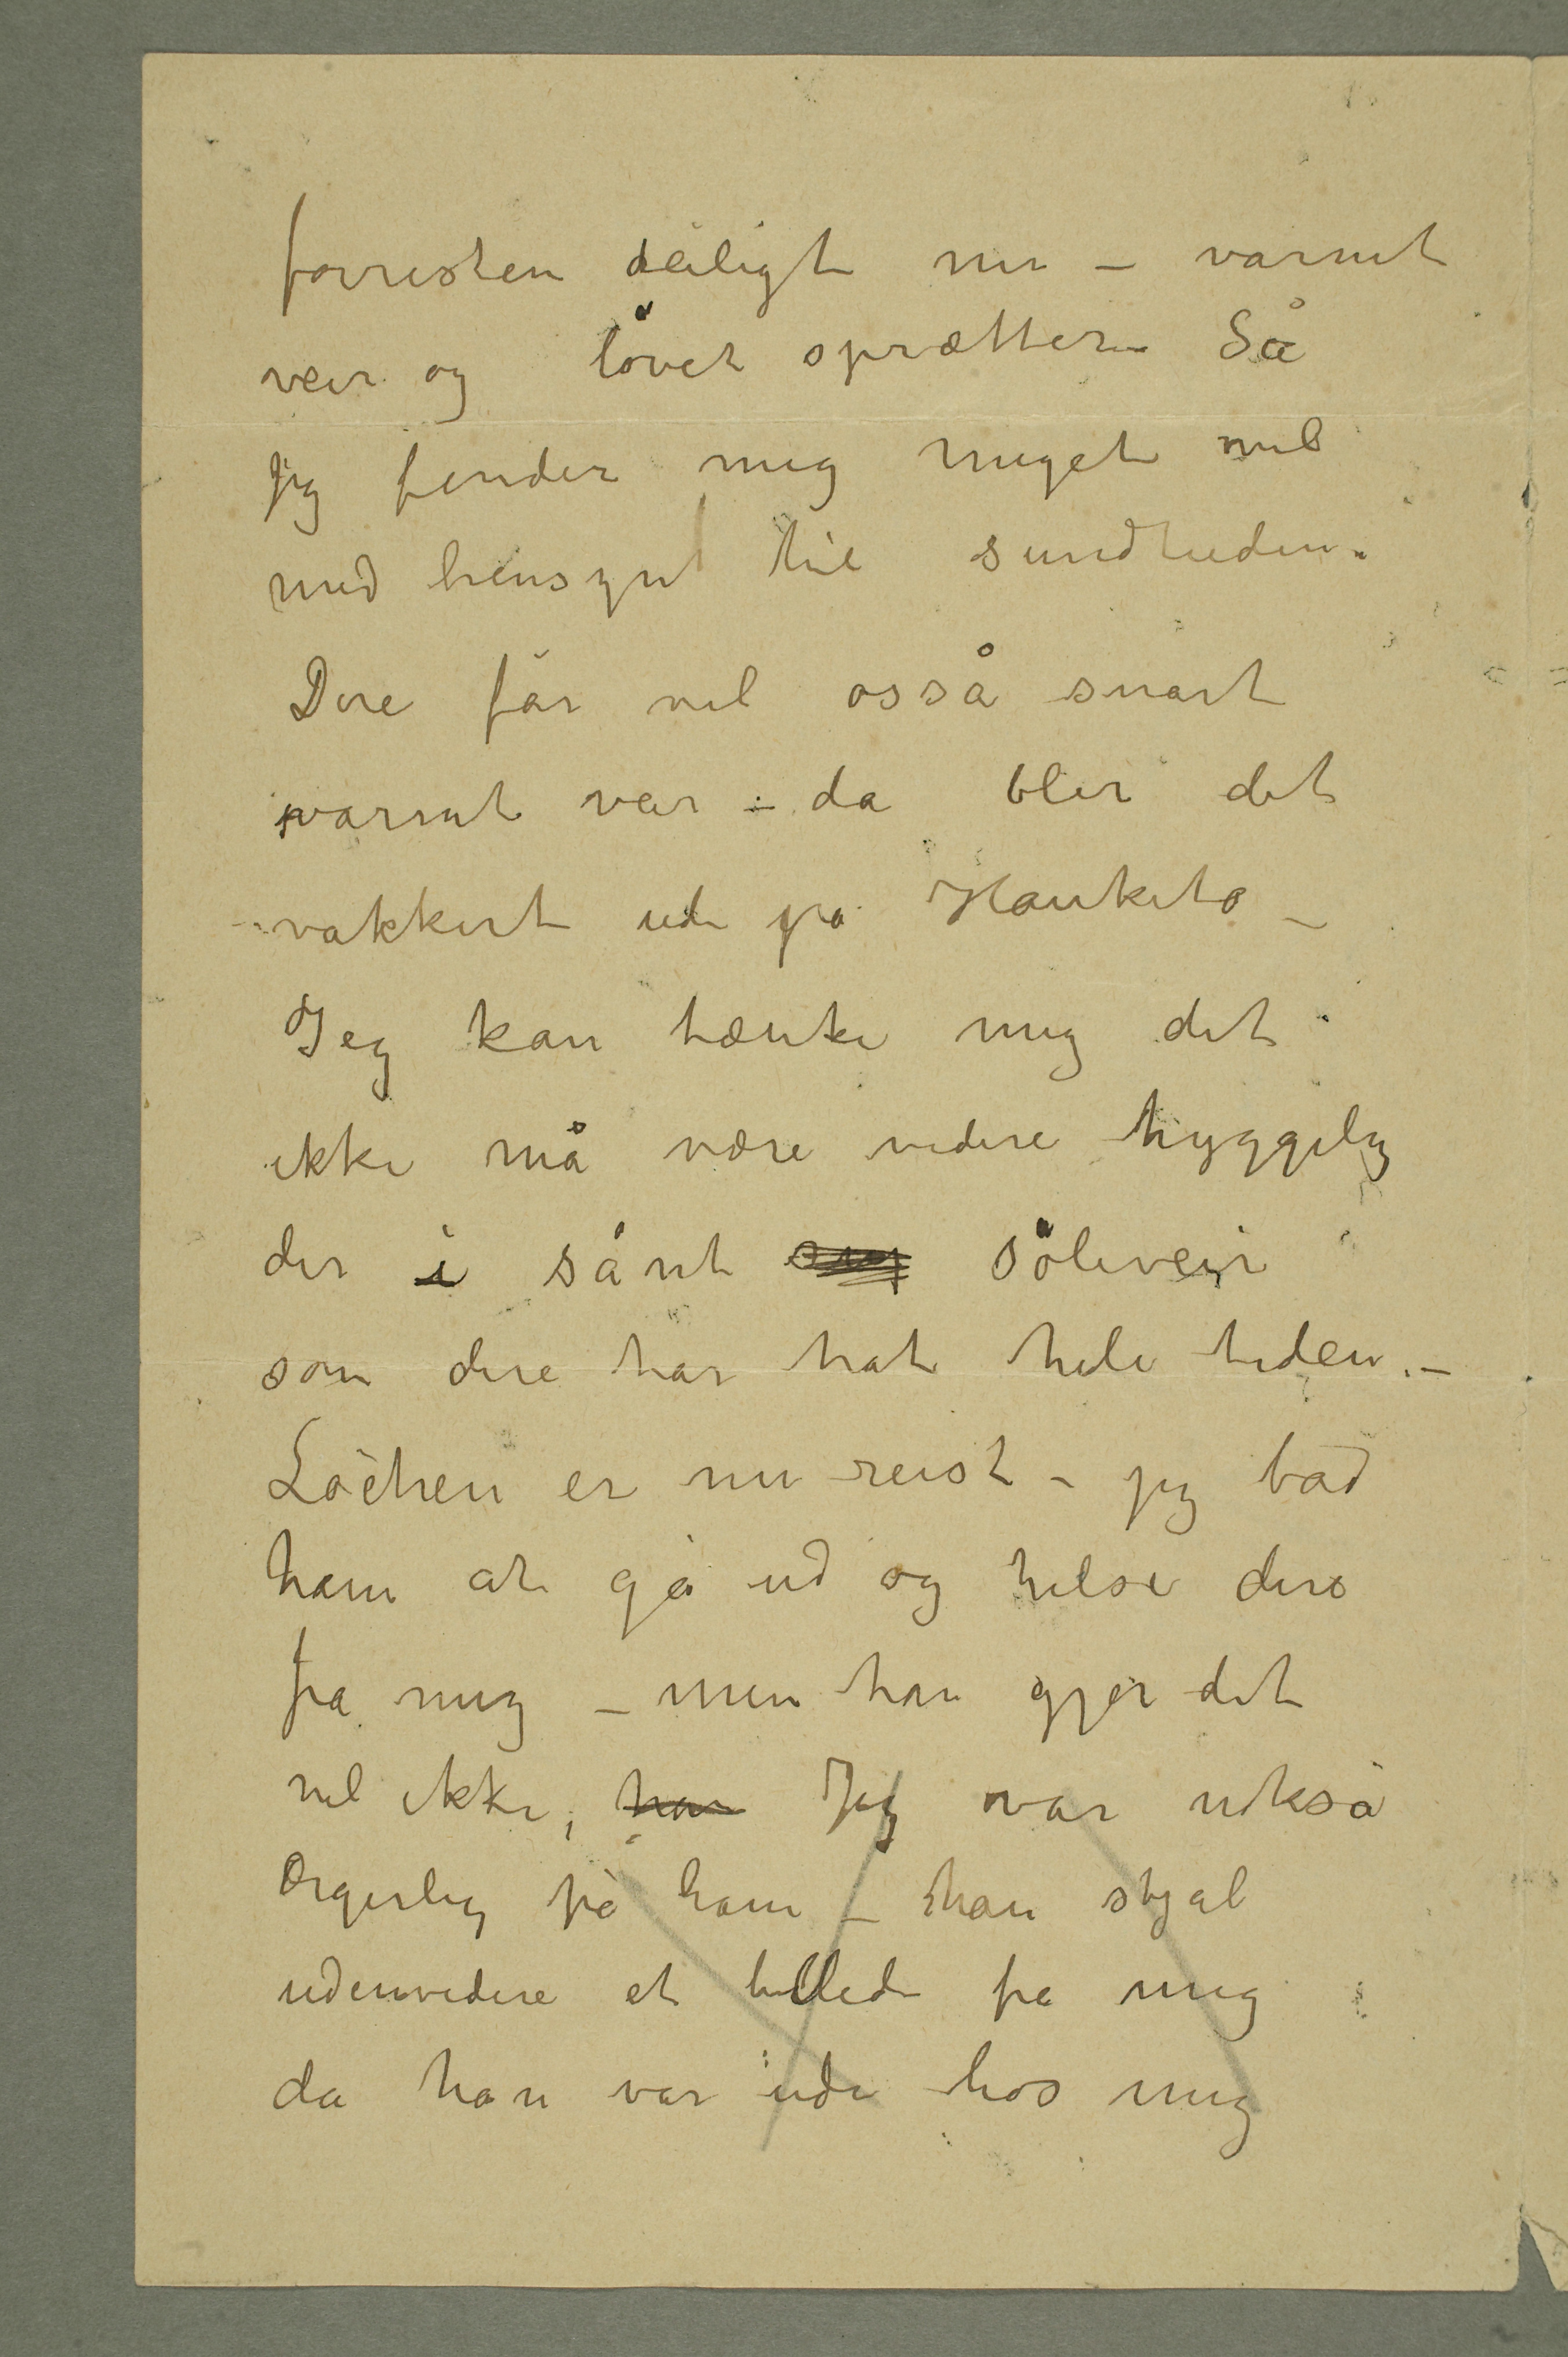 forresten deiligt nu – varmt
veir og løvet sprætter. Så
jeg finder mig meget vel
med hensyn til sundheden.
Dere får vel osså snart
varmt veir – da blir det
vakkert ude på Hauketo –
Jeg kan tænke mig det
ikke må være videre hyggelig
der i sånt søleveir
som dere har hat hele tiden. –
Løchen er nu reist – jeg bad
ham at gå ud og hilse dere
fra mig – men han gjør det
vel ikke, han Jeg var også
ærgerlig på ham – han stjal
udenvidere et billede fra mig
da han var ude hos mig